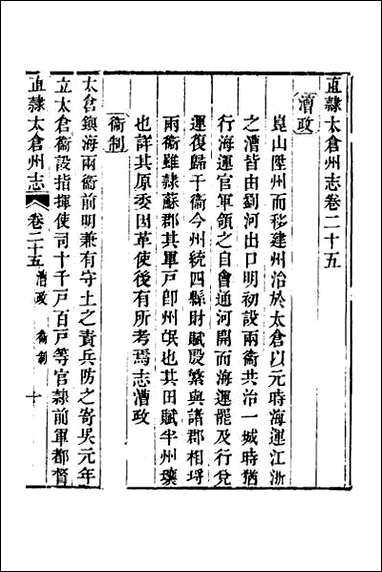 直隸太倉州志卷二十五
漕政
崑山陞州而移建州治於太倉以元時海運江浙
之漕皆由劉河出口明初設兩衞共治一城時猶
行海運官軍領之自會通河開而海運罷及行兌
運復歸于衞今州統四縣財賦殷繁與諸郡相埒
兩衞雖隸蘇郡其軍戶卽州氓也其田賦半州壤
也詳其原委因革使後有所考焉志漕政
衞制
太倉鎮海兩衞前明兼有守土之責兵防之寄吳元年
立太倉衞設指揮使司十千戶百戶等官隸前軍都督
直隸太倉州志
卷二十五漕政 衞制 十